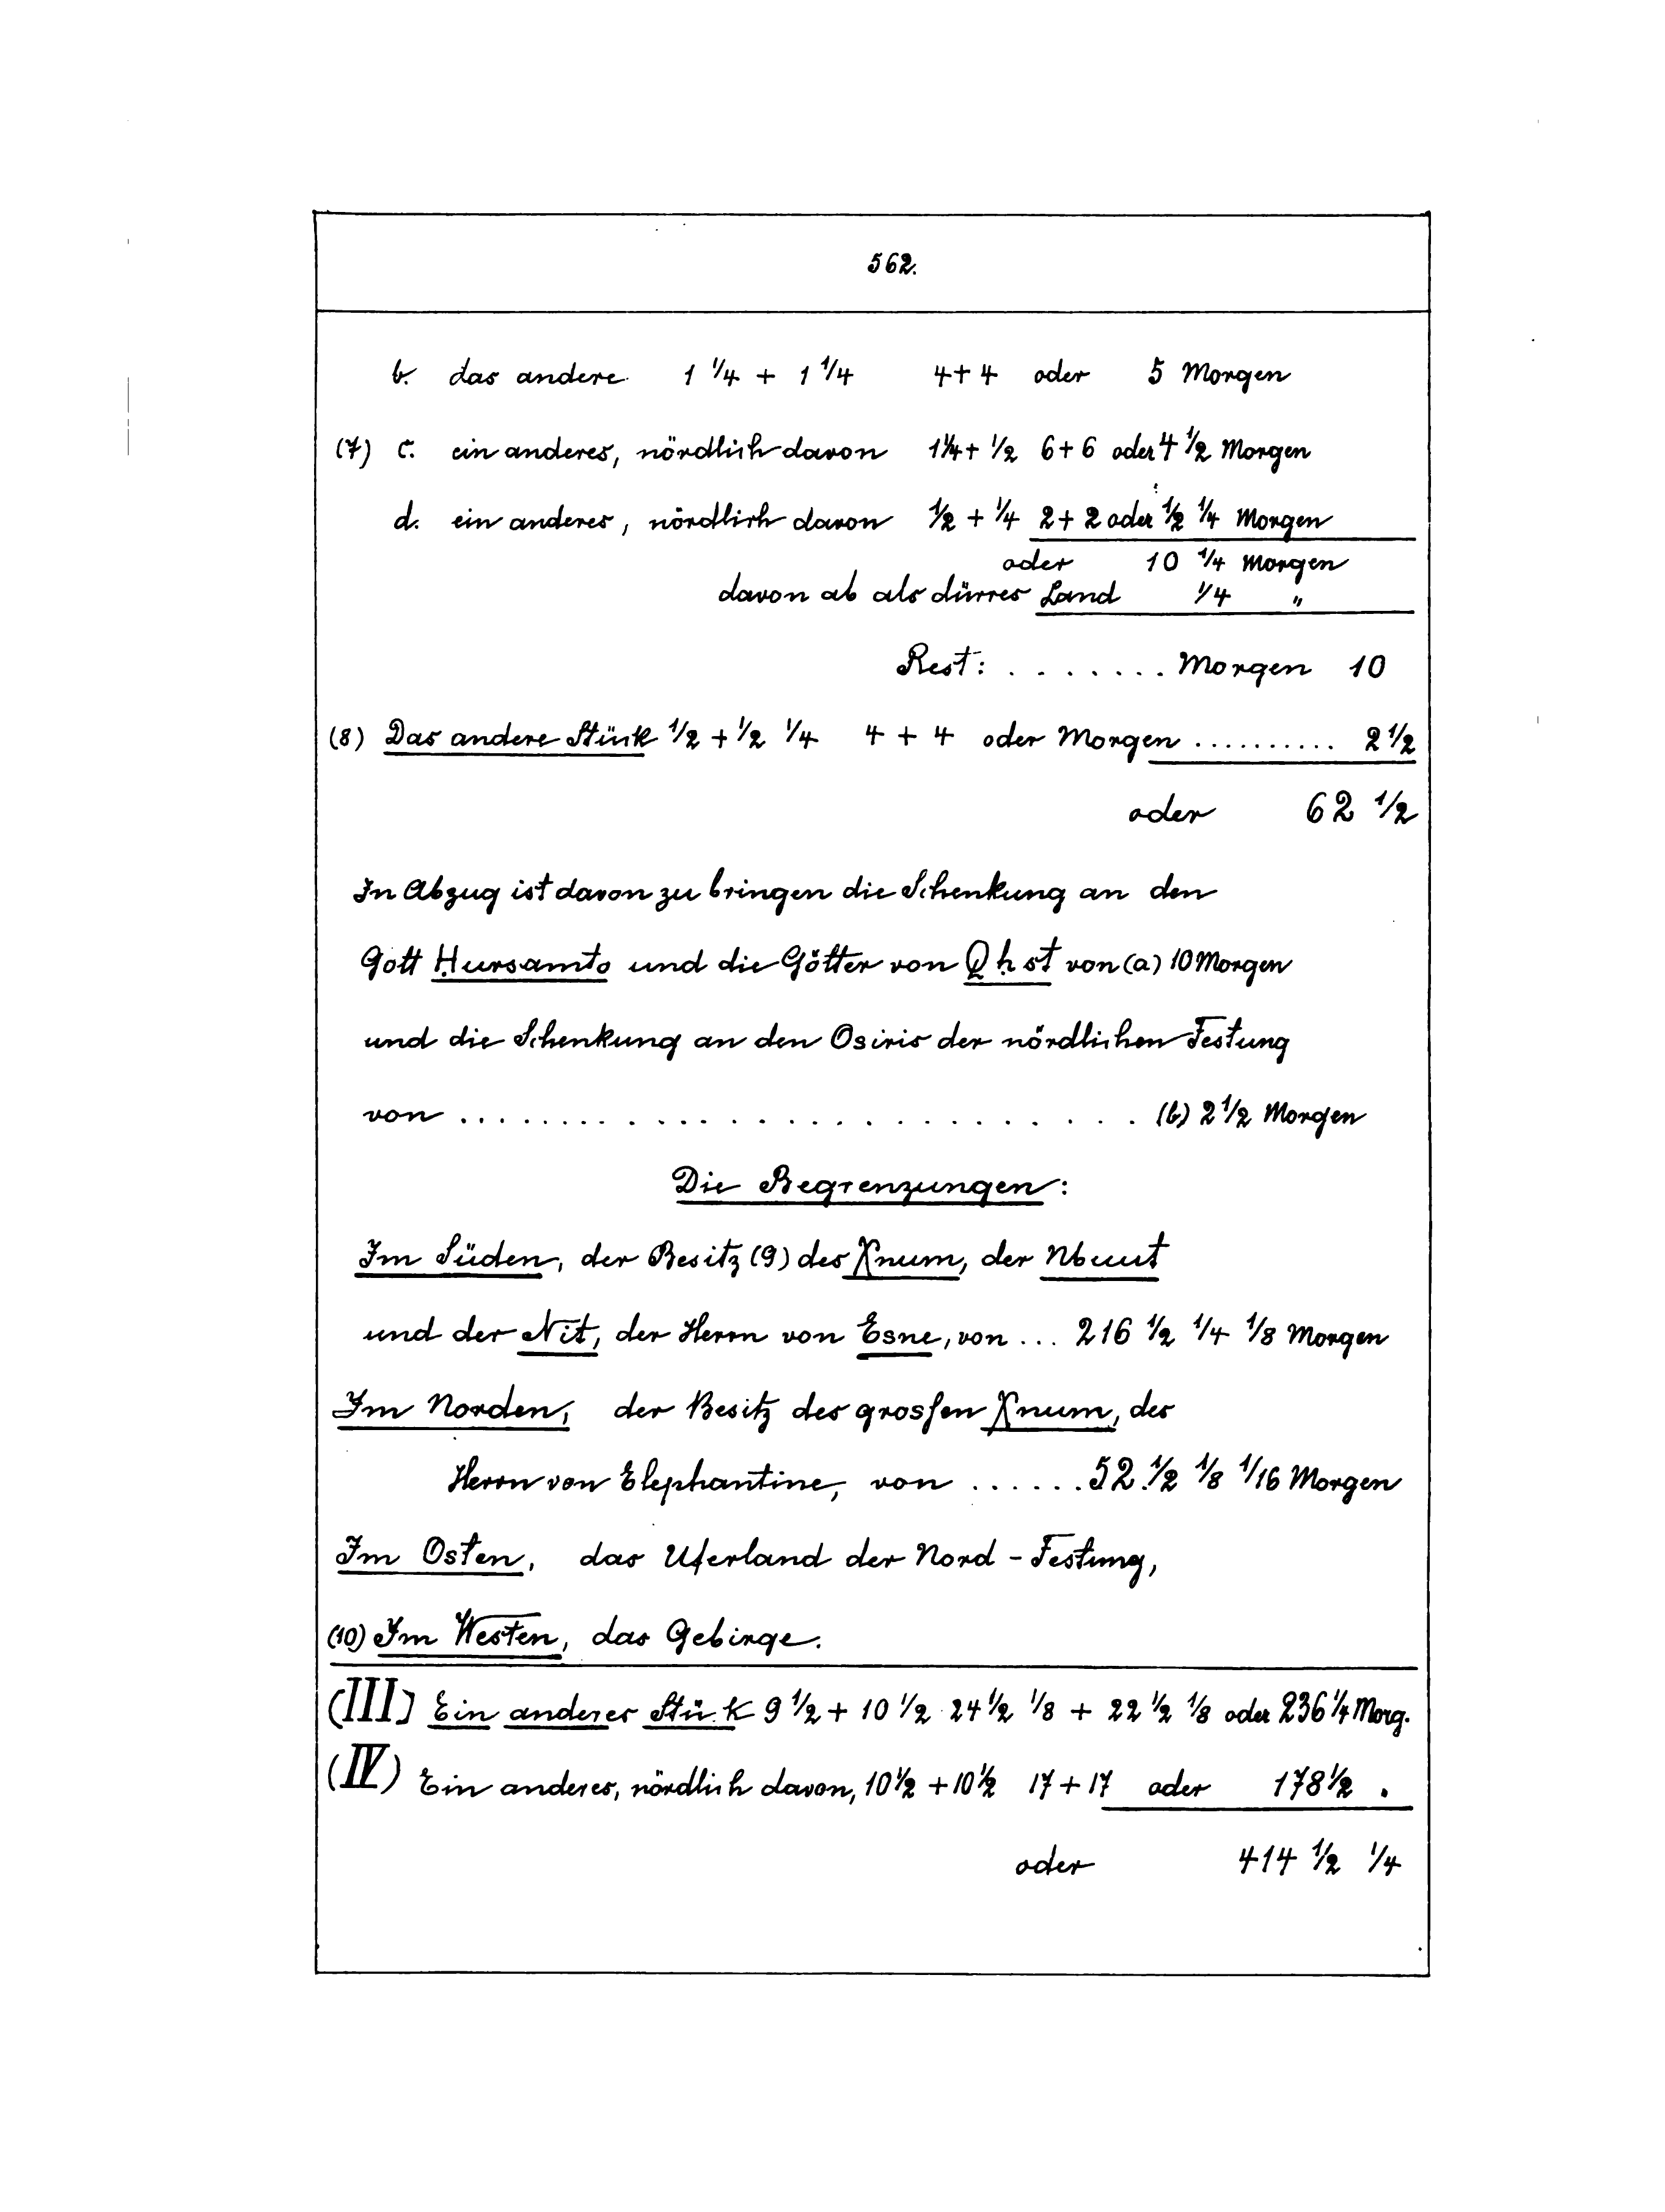 562.
b. das andere 1 1/4 + 1 1/4 4+4 oder 5 Morgen
(7) c. ein anderes, nördlich davon 1 1/4 + 1/2 6+6 oder 4 1/2 Morgen
d. ein anderes, nördlich davon 1/2 + 1/4 2+2 oder 1/2 1/4 Morgen
oder 10 1/4 Morgen
davon ab als dürres Land 1/4 "
Rest: ....... Morgen 10
(8) Das andere Stück 1/2 + 1/2 1/4 4 + 4 oder Morgen .......... 2 1/2
oder 62 1/2
In Abzug ist davon zu bringen die Schenkung an den
Gott Hursamto und die Götter von Qhst von (a) 10 Morgen
und die Schenkung an den Osiris der nördlichen Festung
von ........................... (b) 2 1/2 Morgen
Die Begrenzungen:
Im Süden, der Besitz (9) des Xnum, der Nbuut
und der Nit, der Herrn von Esne, von ... 216 1/2 1/4 1/8 Morgen
Im Norden, der Besitz des grossen Xnum, des
Herrn von Elephantine, von ...... 52. 1/2 1/8 1/16 Morgen
Im Osten, das Uferland der Nord-Festung,
(10) Im Westen, das Gebirge.
(III) Ein anderes Stück 9 1/2 + 10 1/2 24 1/2 1/8 + 22 1/2 1/8 oder 236 1/4 Morg.
(IV) Ein anderes, nördlich davon, 10 1/2 + 10 1/2 17 + 17 oder 178 1/2 .
oder 414 1/2 1/4